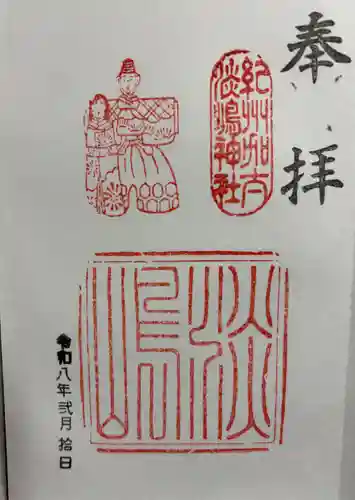 奉拝
紀州加太
淡嶋神社
淡嶋
令和八年弐月拾日